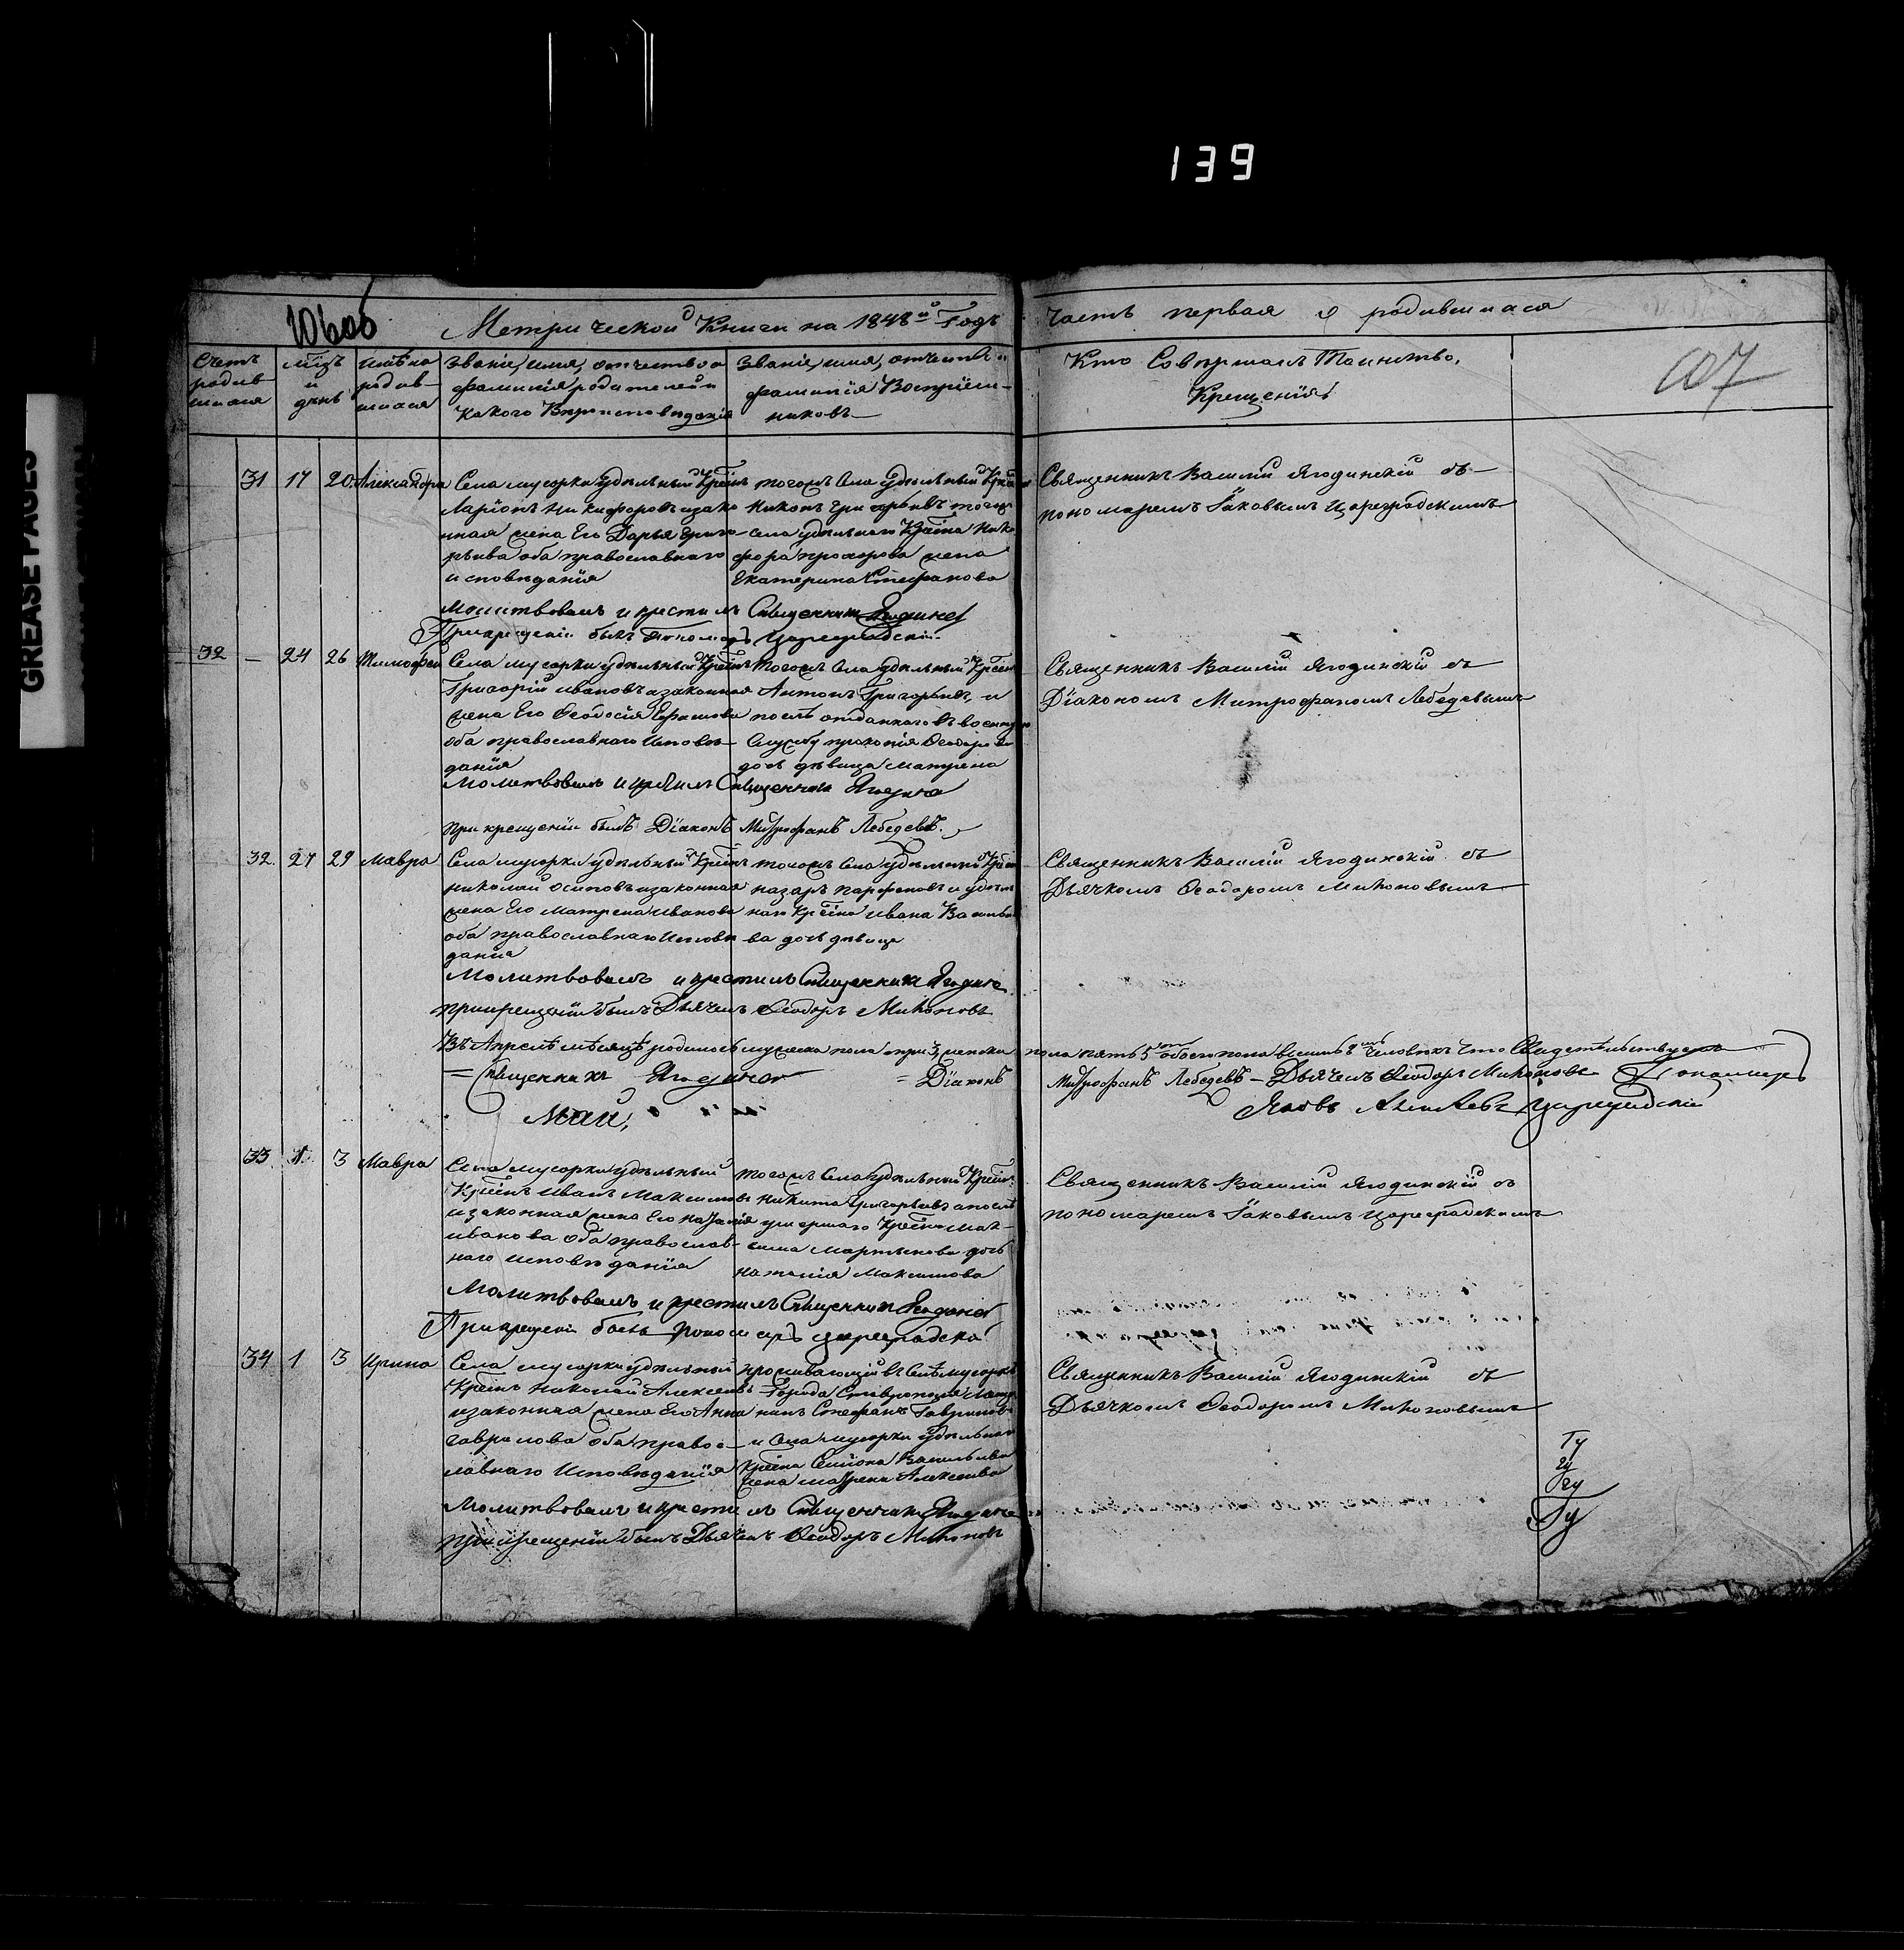 139
GREASE PAGES
Метрической Книги на 1848й Годъ
Часть первая о родившихся
107
Счетъ родив шихся
мѣцъ и день
имѣна родив шихся
Званіе, имя, отчество и
фамилія родителей и
Какого Вѣроисповеданія
Званіе, имя, отчество и
фамилія Воспріем-
никовъ
Кто Совершалъ Таинство,
Крещенія
31 17 20 Александра
Села мусорки удѣльный Крѣінъ
Ларіонъ Никифоровъ изако
нная жена Его Дарья Григо
рьива оба православнаго
исповѣданія
тогожъ Села удѣльный
Никонъ Григорьивъ тогоже
села удѣльнаго Крѣіна Ники
фора прохорова жена
Екатерина Стефанова
Священникъ Василій Ягодинскій съ
пономаремъ Іаковымъ Цареградскимъ
Молитвовалъ и крестилъ Священникъ
При крещеніи былъ Пономарь Цареградскій
32 — 24 26 Тимофей
Села мусорки удѣльный Крѣінъ
Григорій ивановъ изаконная
жена Его Ѳеодосія
оба православнаго Исповѣ
данія
тогожъ Села удѣльный Крѣінъ
Антонъ Григорьивъ, и
послѣ отданнаго въ военную
Службу прокопія Ѳеодорова
дочь дѣвица Матрена
Священникъ Василій Ягодинскій съ
Діакономъ Митрофаномъ Лебедевымъ
Молитвовалъ и крестилъ Священникъ
при крещеніи былъ Діаконъ Митрофанъ Лебедевъ.
32. 27 29 Мавра
Села мусорки удѣльный Крѣінъ
николай осиповъ изаконная
жена Его Матрена иванова
оба православнаго Исповѣ
данія
тогожъ Села удѣльный Крѣінъ
назаръ парфеновъ и удѣль
наго Крѣіна ивана Василье
ва дочь дѣвица
Священникъ Василій Ягодинскій съ
Дьячкомъ Ѳеодоромъ Мироновымъ
Молитвовалъ и крестилъ Священникъ
при крещеніи былъ Дьячекъ Ѳеодоръ Мироновъ
Въ Апрелѣ мѣсяцѣ родилось мужеска пола три 3, женска пола пять 5 обоего пола восемь 8 человѣкъ Что Свидетельствуемъ
Священникъ = Діаконъ Митрофанъ Лебедевъ – Дьячекъ Ѳеодоръ Мироновъ Пономарь
Яковъ Цареградскій
Май,
33 1. 3 Мавра
Села мусорки удѣльный
Крѣінъ Иванъ Максимовъ
изаконная жена Его наталія
иванова оба православ
наго исповѣданія
тогожъ Села удѣльный Крѣінъ
Никита Григорьевъ и послѣ
умершаго Крѣіна Мак-
сима Мартынова дочь
наталія Максимова
Священникъ Василій Ягодинскій съ
пономаремъ Іаковымъ Цареградскимъ
Молитвовалъ и крестилъ Священникъ
При крещеніи былъ Пономарь Цареградскій
34 1 3 Ирина
Села мусорки удѣльный
Крѣінъ Николай Алексеивъ
изаконная жена Его Анна
гаврилова оба право-
славнаго Исповѣданія
проживающій въ Селѣ мусоркѣ
Города Ставрополя
Стефанъ Гавриловъ
и Села мусорки удѣльнаго
Крѣіна Семіона Васильива
жена матрена Алексеива
Священникъ Василій Ягодинскій съ
Дьячкомъ Ѳеодоромъ Мироновымъ
Молитвовалъ и крестилъ Священникъ
при крещеніи былъ Дьячекъ Ѳеодоръ Мироновъ